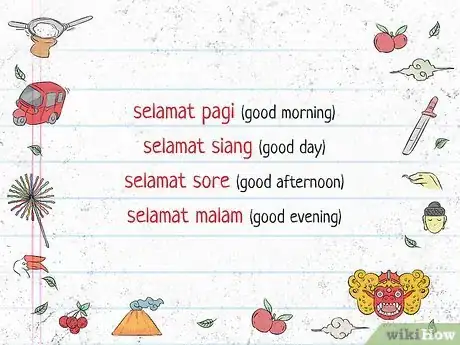 selamat pagi (good morning)
selamat siang (good day)
selamat sore (good afternoon)
selamat malam (good evening)
wikiHow